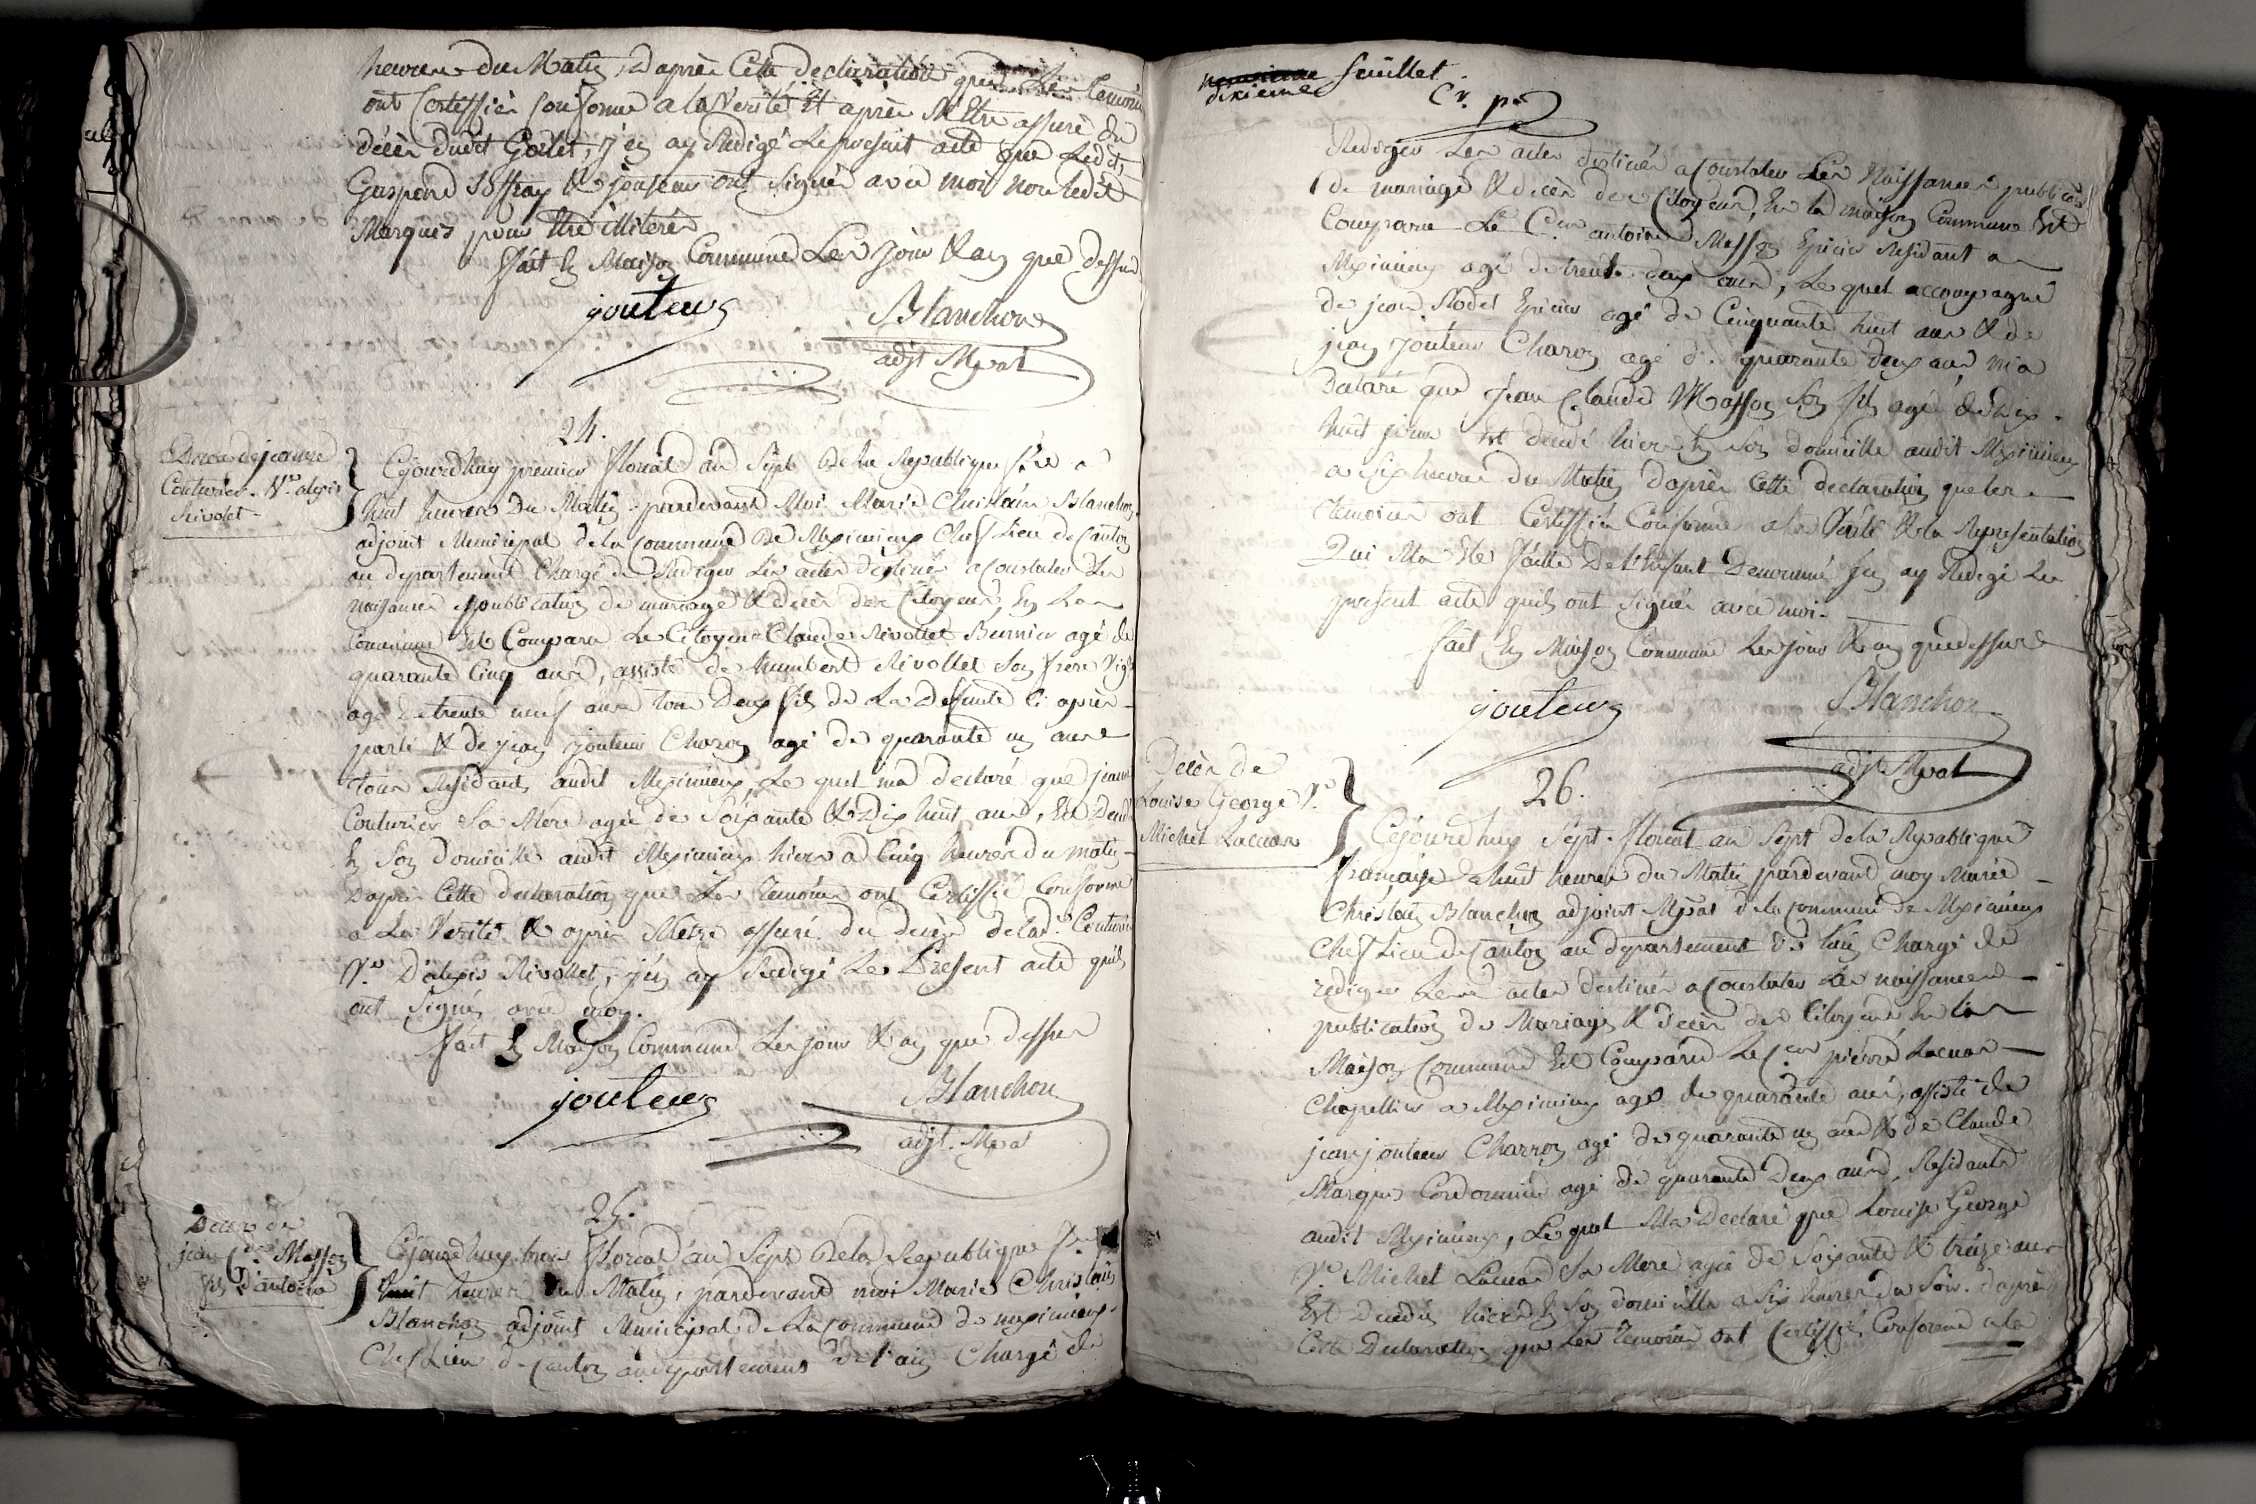 heures du Matin, d'après Cette declaration que les temoins
ont Certiffiés Conforme a la Verité Et après M'Etre assuré du
décès dudit Gorlet, j'en ay Redigé Le present acte que Ledit
Gaspard & jouteur ont Signés avec moi non Ledit
Marquis pour Etre illiteré
fait En Maison Commune Les jour & an que dessus
jouteur
Blanchon
adjt Mpal
24.
Deces de jeanne
Couturier Ve. alexis
Rivolet
Cejourdhuy premier floreal an Sept De la Republique fse a
huit heures Du Matin pardevant Moi Marie Christain Blanchon
adjoint Municipal de la Commune De Meximieux Chef Lieu de Canton
au departement Chargé de Rediger Les actes destinés a Constater Les
naissances publication de mariage & décès des Citoyens, En La
Commune Est Comparu Le Citoyen Claude Rivollet agé de
quarante Cinq ans, assisté de humbert Rivollet Son frere
agé De trente neuf ans tous Deux fils de La Deffunte Ci après
parti & de jean jouteur Charon agé de quarante un ans
tous Residants audit Meximieux, Le quel ma declaré que jeanne
Couturier Sa Mere agée de Soixante & Dix huit ans, Est Décédé
En Son domicille audit Meximieux hiers a Cinq heures du matin
D'après Cette declaration que Les temoins ont Certiffié Conforme
a La Verité & après M'être assuré du décès de lad. Couturier
Ve D'alexis Rivollet, j'en ay Redigé Le Present acte quils
ont Signés avec moy.
fait En Maison Commune Les jour & an que dessus
jouteur
Blanchon
adjt. Mpal
25.
Deces de
jean Cde Masson
fils d'antoine
Cejourdhuy trois floreal an Sept De la Republique fse a
huit heures Du Matin, pardevant moi Marie Christain
Blanchon adjoint Municipal de La Commune de meximieux
Chef Lieu de Canton au departement De l'ain Chargé de
dixieme feuillet
Rediger Les actes destinés a Constater Les Naissances publication
de mariage & décès des Citoyens, En La maison Commune Est
Comparu Le Cen antoine Masson Epicier Residant a
Meximieux agé de trente deux ans, Le quel accompagné
de jean Rodet Epicier agé de Cinquante huit ans & de
jean jouteur Charon agé de quarante deux ans m'a
Declaré que Jean Claude Masson Son fils agé de dix
huit jours Est decedé hiers En Son domicille audit Meximieux
a Six heures Du Matin D'après Cette declaration que les
Temoins ont Certiffiés Conforme a la Verité & la Representation
Qui Ma Eté faitte De L'Enfant Denommé j'en ay Redigé Le
present acte quils ont Signés avec moi.
fait En Maison Commune Les jour & an que dessus
jouteur
Blanchon
adjt Mpal
26.
Décès de
Louise George Ve.
Michel Lacuar
Cejourdhuy Sept floreal an Sept de la Republique
française a huit heures du Matin pardevant moy Marie
Christain Blanchon adjoint Mpal de la commune de Meximieux
Chef Lieu de Canton au departement De l'ain Chargé de
rediger Les actes destinés a Constater Les naissances
publication de Mariage & décès des Citoyens En La
Maison Commune Est Comparu Le Cen pierre Lacuar
Chapellier a Meximieux agé de quarante ans, assisté de
jean jouteur Charron agé de quarante un ans & de Claude
Marquis Cordonnier agé de quarante Deux ans, Residants
audit Meximieux, Le quel Ma Declaré que Louise George
Ve Michel Lacuar Sa Mere agée de Soixante & treize ans
Est Decedée hiers En Son domicille a Six heures du Soir. d'après
Cette Declaration que Les temoins ont Certiffiés Conforme a la